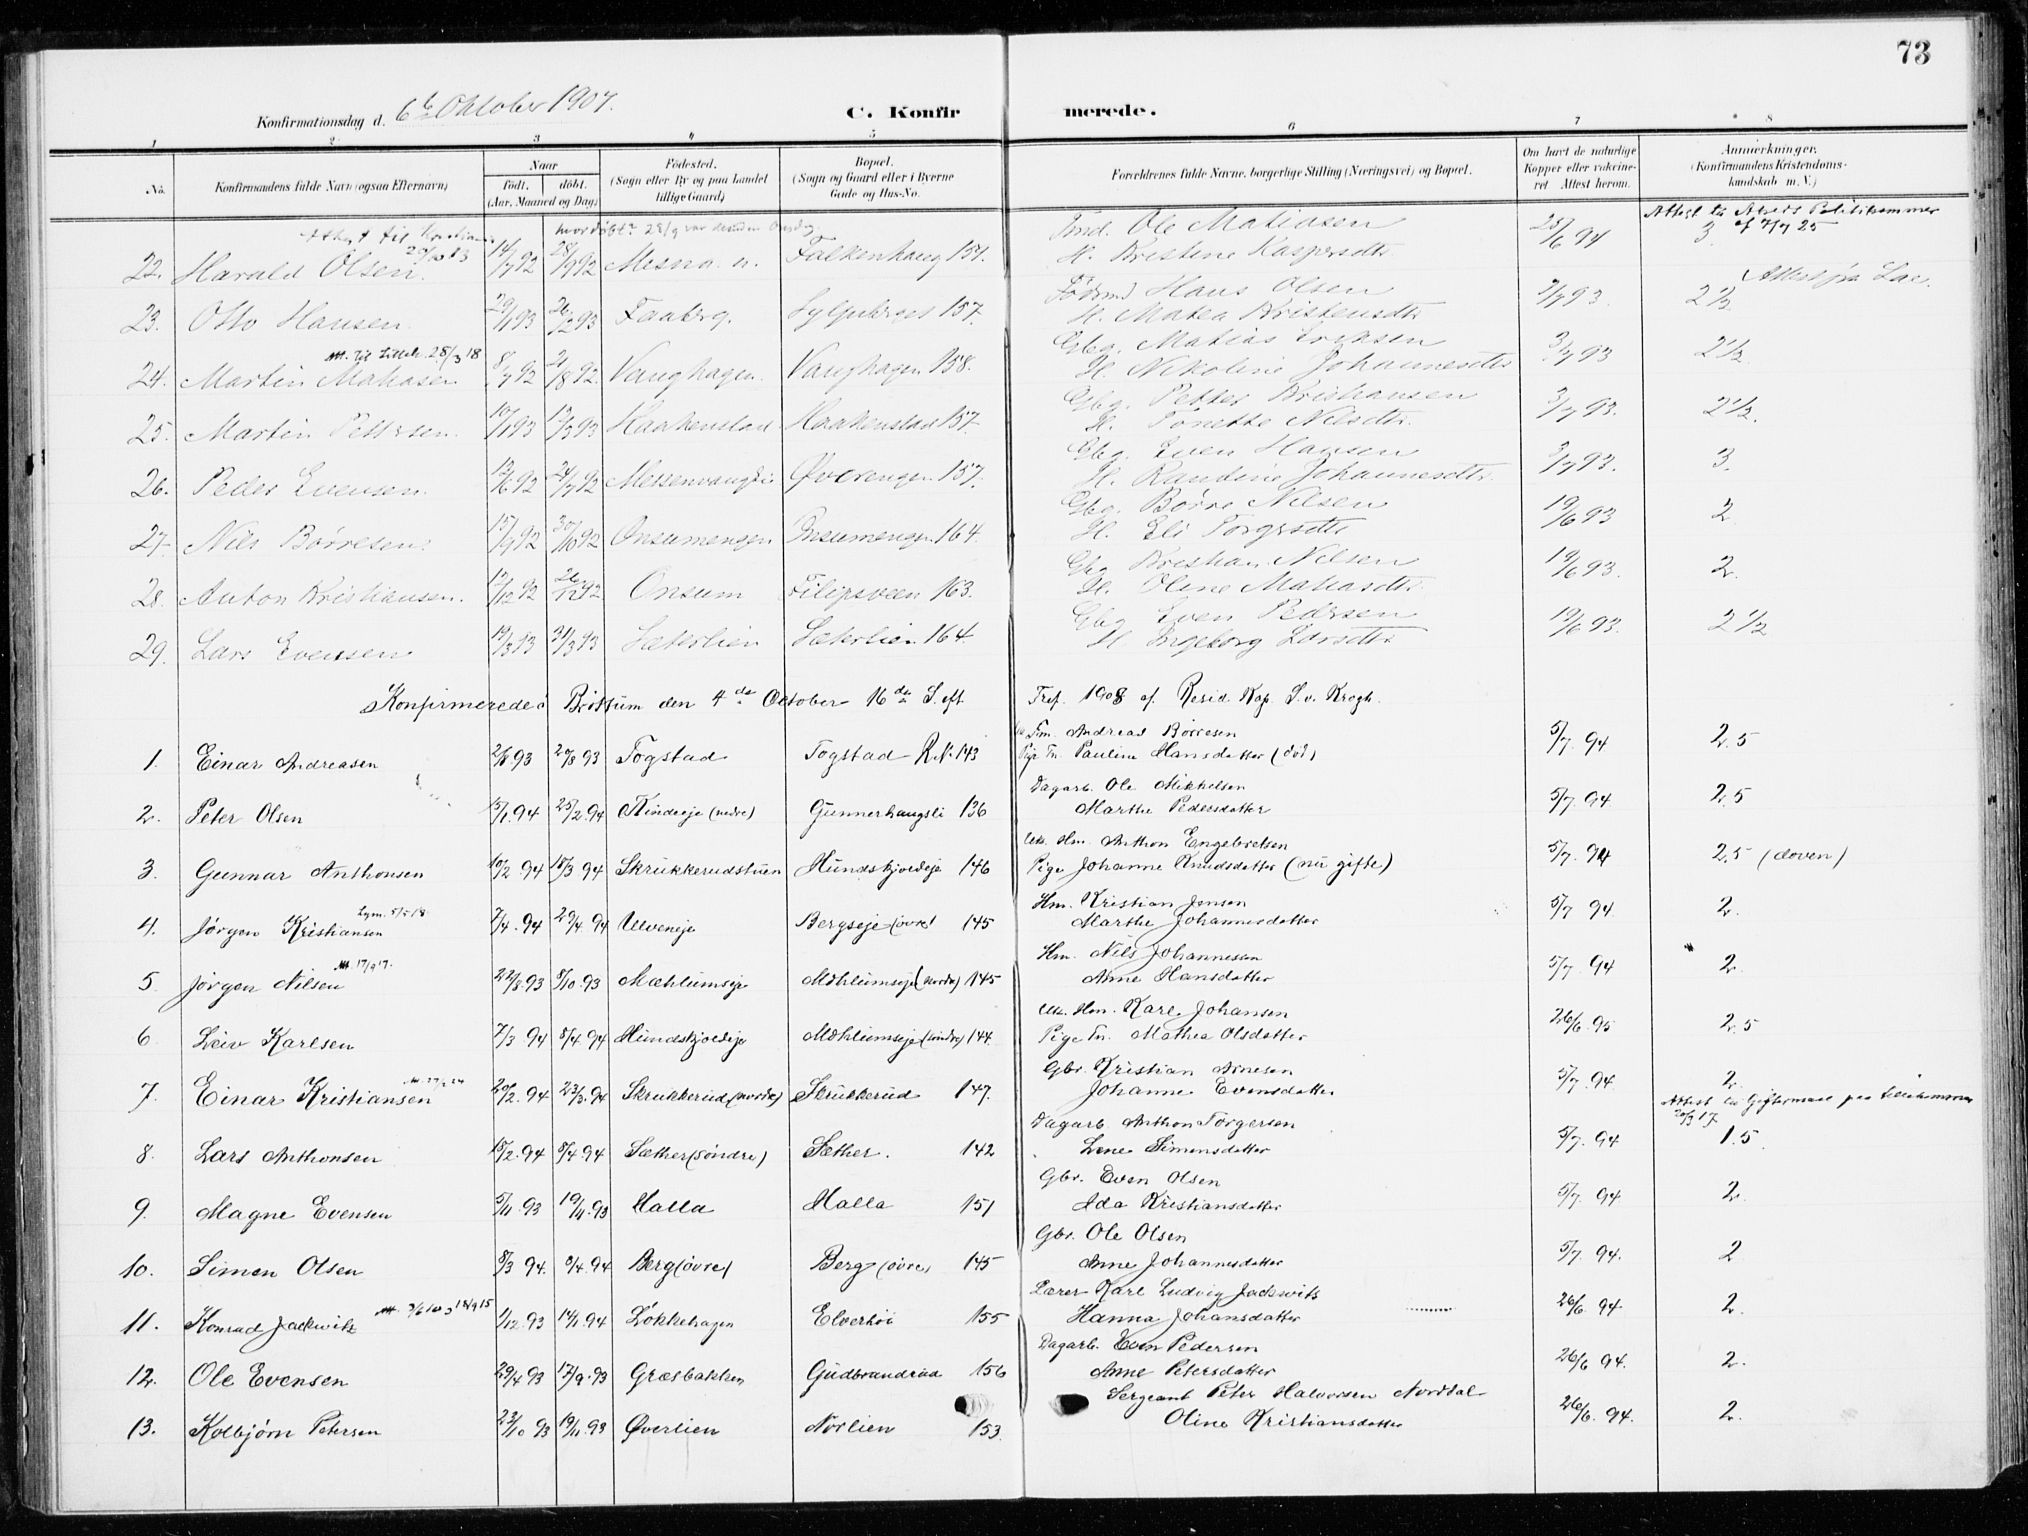 73
Konfirmationsdag d. 6te Oktober 1907. C. Konfir merede.
1 2 3 4 5 6 7 8
No. Konfirmandens fulde Navn (ogsaa Efternavn) Naar född. döbt. (Aar, Maaned og Dag) Födested. (Sogn eller By og paa Landet tillige Gaard) Bopæl. (Sogn og Gaard eller i Byerne Gade og Hus-No. Forældrenes fulde Navne, borgerlige Stilling (Næringsvei) og Bopæl. Om havt de naturlige Kopper eller vakcineret. Attest herom. Anmærkninger. (Konfirmandens Kristendomskundskab m. V.)
22. Harald Olsen 14/7 92 28/9 92 Mesna n. Falkenhaug 157. Ole Matiasen 25/6 94 3
H. Kristine Kaspersdtr.
23. Otto Hansen 29/1 93 26/2 93 Faaberg. 157. Hans Olsen 3/7 93. 2 1/2
H. Matea Kristensdtr
24. Martin Matiasen 28/3 18 8/7 92 21/8 92 Vaughagen. Vaughagen 158. Gbg. Matias Eriksen 3/7 93 2 1/2.
H. Nikoline Johannesdtr
25. Martin Pettersen. 10/1 93 12/3 93 Haakenstad Haakenstad 157. Gbg. Petter Kristiansen 3/7 93. 2 1/2.
H. Tonette Nilsdtr.
26. Peder Evensen. 12/6 92 24/7 92 Øverengen 157. Gbg. Even Hansen 3/7 93. 3.
H. Randine Johannesdtr.
27. Nils Børresen. 15/9 92 30/10 92 Onsumengen Onsumengen 164. Gbg. Børre Nilsen 19/6 93 2
H. Eli Torgersdtr
28. Anton Kristiansen. 12/12 92 26/12 92 Onsum Filipsveen 163. Gbg Kristian Nilsen 19/6 93. 2.
H. Oline Matiasdtr.
29. Lars Evensen 19/3 93 31/3 93 Sæterlien Sæterlien 164. Gbg Even Pedersen 19/6 93. 2 1/2
H Ingeborg Larsdtr
Konfirmerede i Brøttum den 4de October 16de S. eft Tref. 1908 af Resid. Kap. S. v. Krogh.
1. Einar Andreasen 2/8 93 27/8 93 Togstad Togstad R.N. 143 Andreas Børresen 5/7. 94 2.5
Pige Pauline Hansdatter (död)
2. Peter Olsen 15/1. 94 25/2. 94 Kindseje (nedre) Gunnerhaugsli 136 Dagarb. Ole Mikkelsen 5/7. 94 2.5
Marthe Pedersdatter
3. Gunnar Anthonsen 10/2. 94 18/3 94 Skrukkerudstuen Hundskjoldeje 146 Uek. Hm. Anthon Engebretsen 5/7. 94 2,5 (doven)
Pige Johanne Knudsdatter (nu gifte)
4. Jørgen Kristiansen 7/4. 94 29/4. 94 Ulveneje Bergseje (øvre) 145 Hm. Kristian Jensen 5/7 94. 2.
Marthe Johannesdatter
5. Jørgen Nilsen 17/9 17. 22/8.93 8/10. 93 Mæhlumseje Mæhlumseje (nordre) 145 Hm. Nils Johannessen 5/7. 94 2.
Anne Hansdatter
6. Leiv Karlsen 7/3 94 8/4. 94 Hundskjoldeje Mæhlumseje (søndre) 144. Uek. Hm. Karl Johansen 26/6. 95 2.5
Pige Mathea Olsdatter
7. Einar Kristiansen 20/2. 94 23/3. 94 Skrukkerud (nordre) Skrukkerud 147. Gbr. Kristian Arnesen 5/7. 94. 2.
Johanne Evensdatter
8. Lars Anthonsen 18/2. 94 8/4. 94 Sæther (søndre) Sæther. 142 Dagarb. Anthon Torgersen 5/7. 94 1.5.
Lene Simensdatter
9. Magne Evensen 5/11. 93 19/11. 93 Halla Halla 151 Gbr. Even Olsen 5/7. 94 2.
Ida Kristiansdatter
10. Simen Olsen 8/3 94. 8/4. 94 Berg (øvre) Berg (øvre) 145 Gbr. Ole Olsen 5/7. 94. 2
Anne Johannesdatter
11. Konrad Jackwitz 1/12. 93 14/1. 94 Løkkehagen Elverhøi 155 Lærer Karl Ludvig Jackwitz 26/6. 94. 2.
Hanna Johansdatter
12. Ole Evensen 29/4 93 17/9. 93 Græsbakken Gudbrandruu 156 Dagarb. Even Pedersen 26/6 94. 2.
Anne Petersdatter
13. Kolbjørn Petersen 23/10 93 19/11. 93 Øverlien Nørlien 153. Sergeant Peter Halvorsen Nordal 26/6. 94. 2.
Oline Kristiansdatter